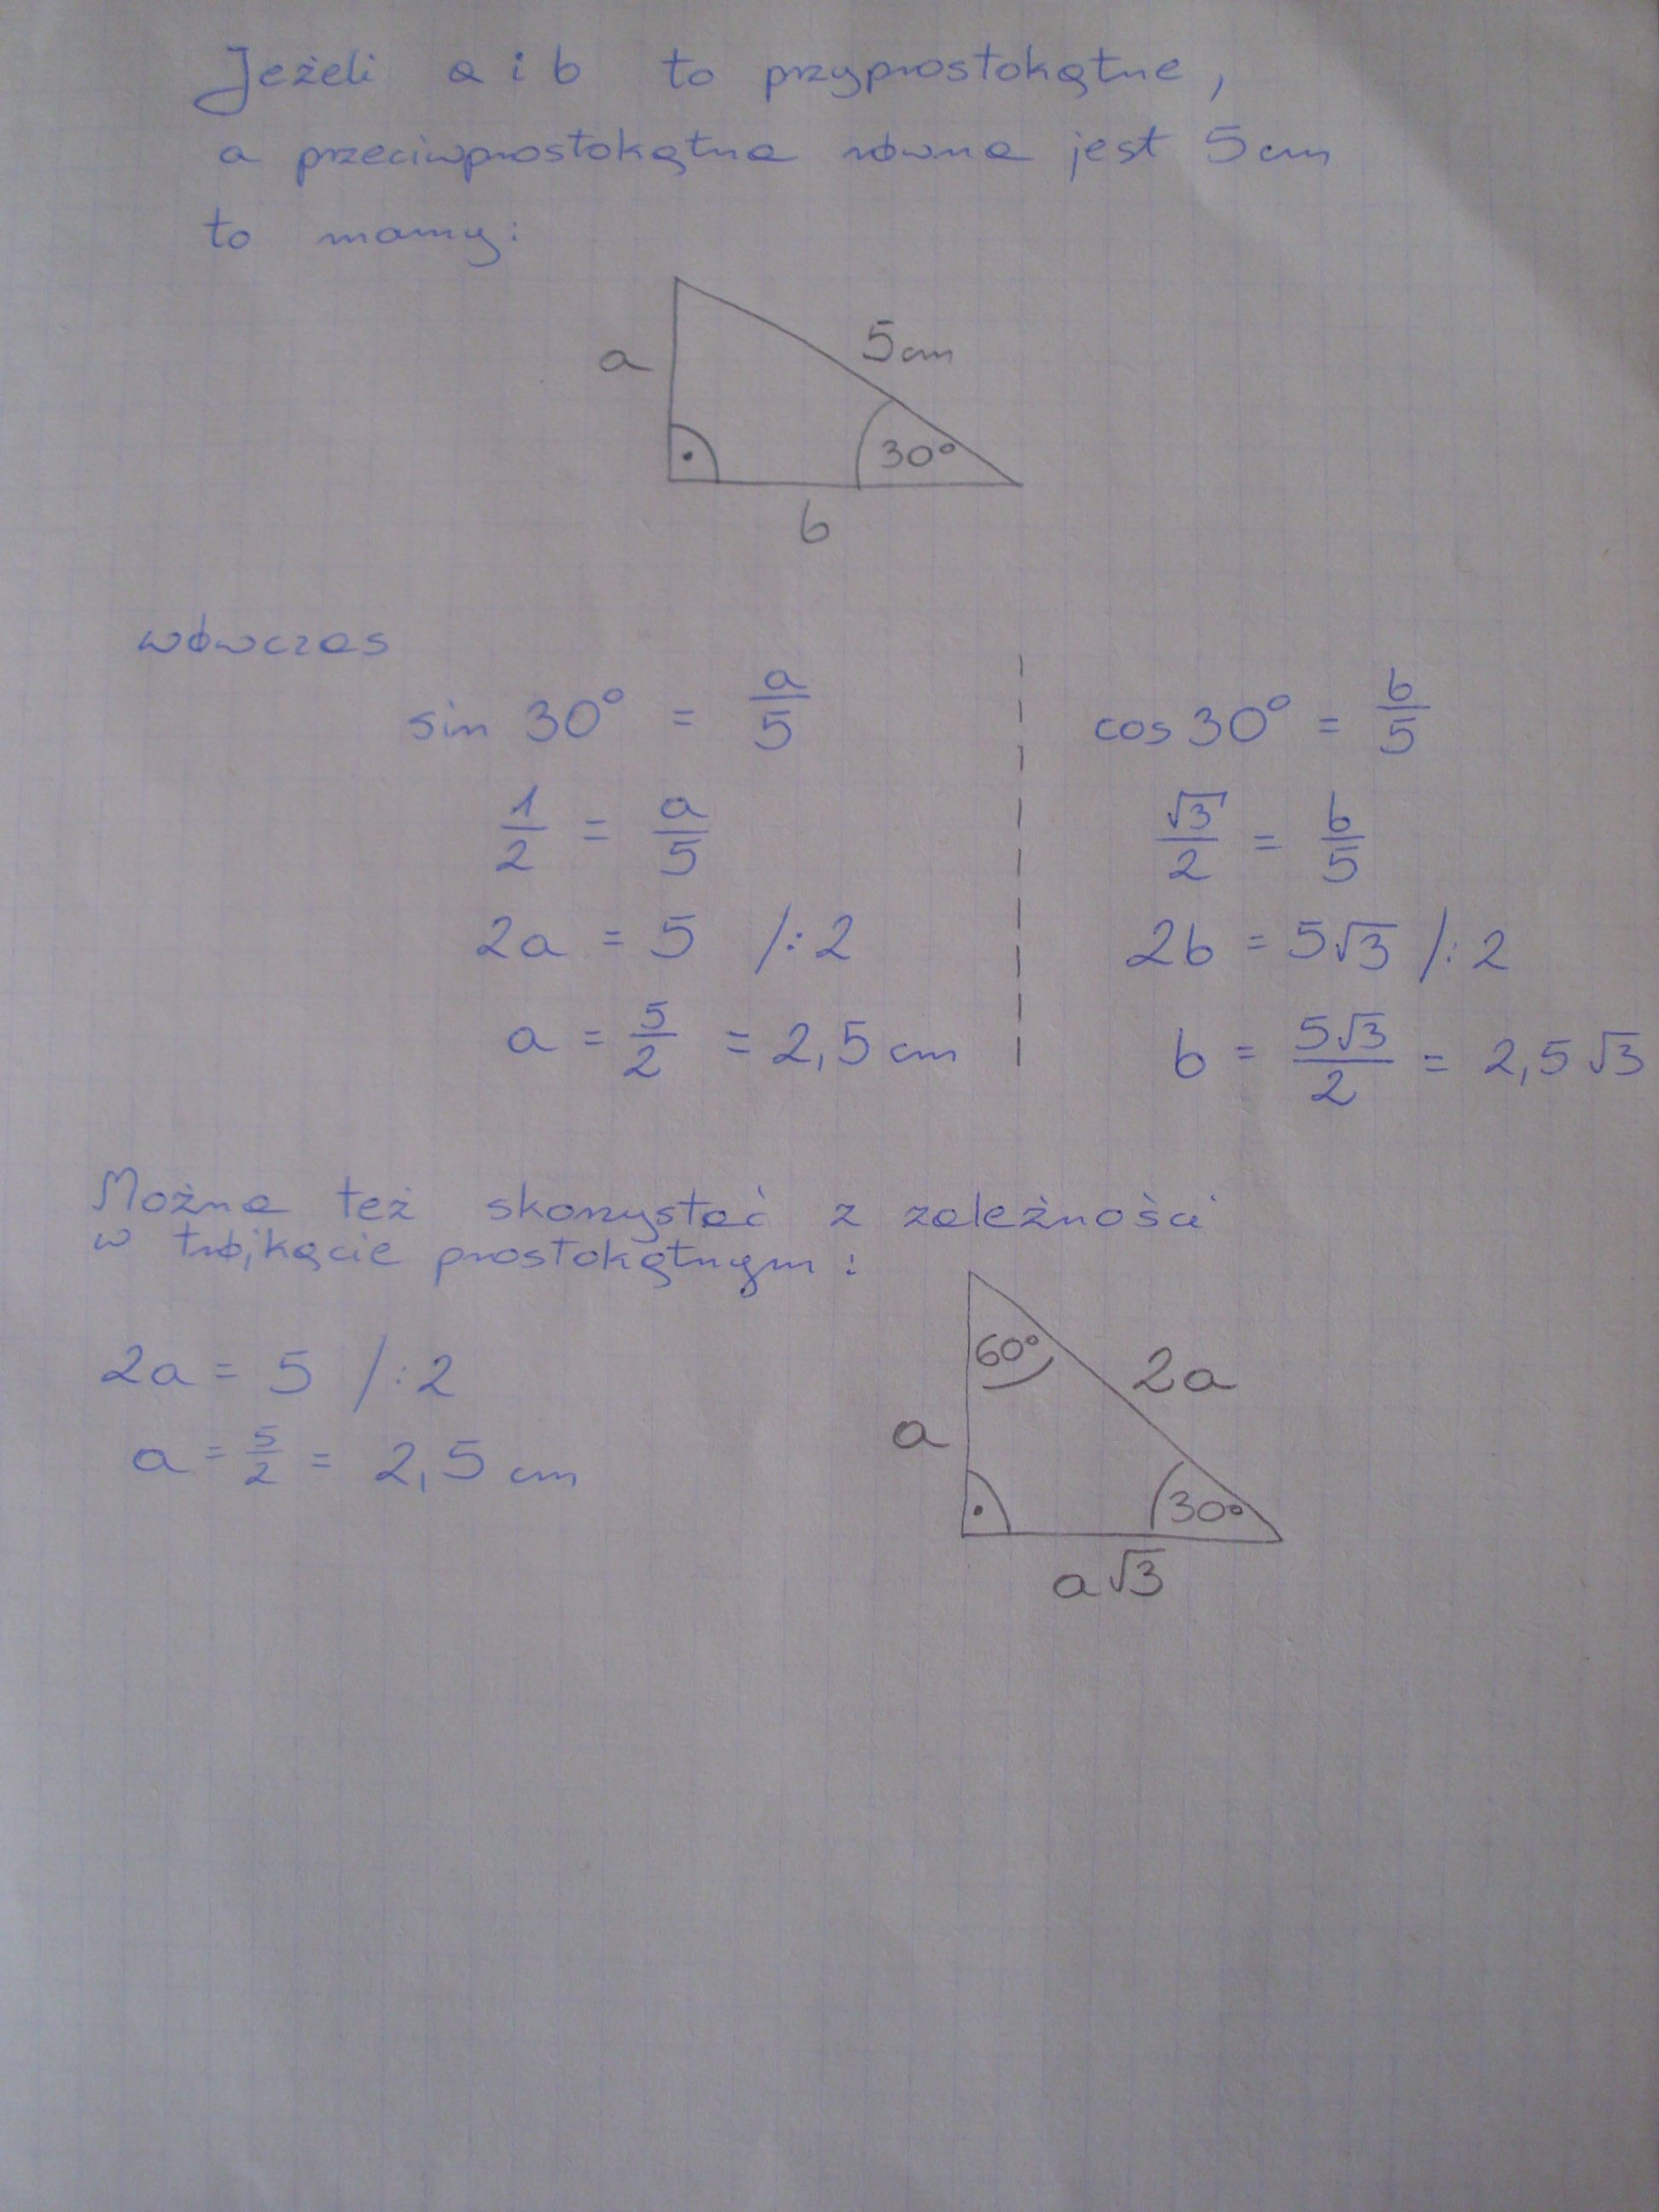 Jeżeli a i b to przyprostokątne,
a przeciwprostokątna równa jest 5cm
to mamy:
a
5cm
30°
b
wówczas
sin 30° = a/5
1/2 = a/5
2a = 5 /:2
a = 5/2 = 2,5 cm
cos 30° = b/5
√3/2 = b/5
2b = 5√3 /:2
b = 5√3/2 = 2,5√3
Można też skorzystać z zależności
w trójkącie prostokątnym:
2a = 5 /:2
a = 5/2 = 2,5 cm
60°
2a
a
30°
a√3